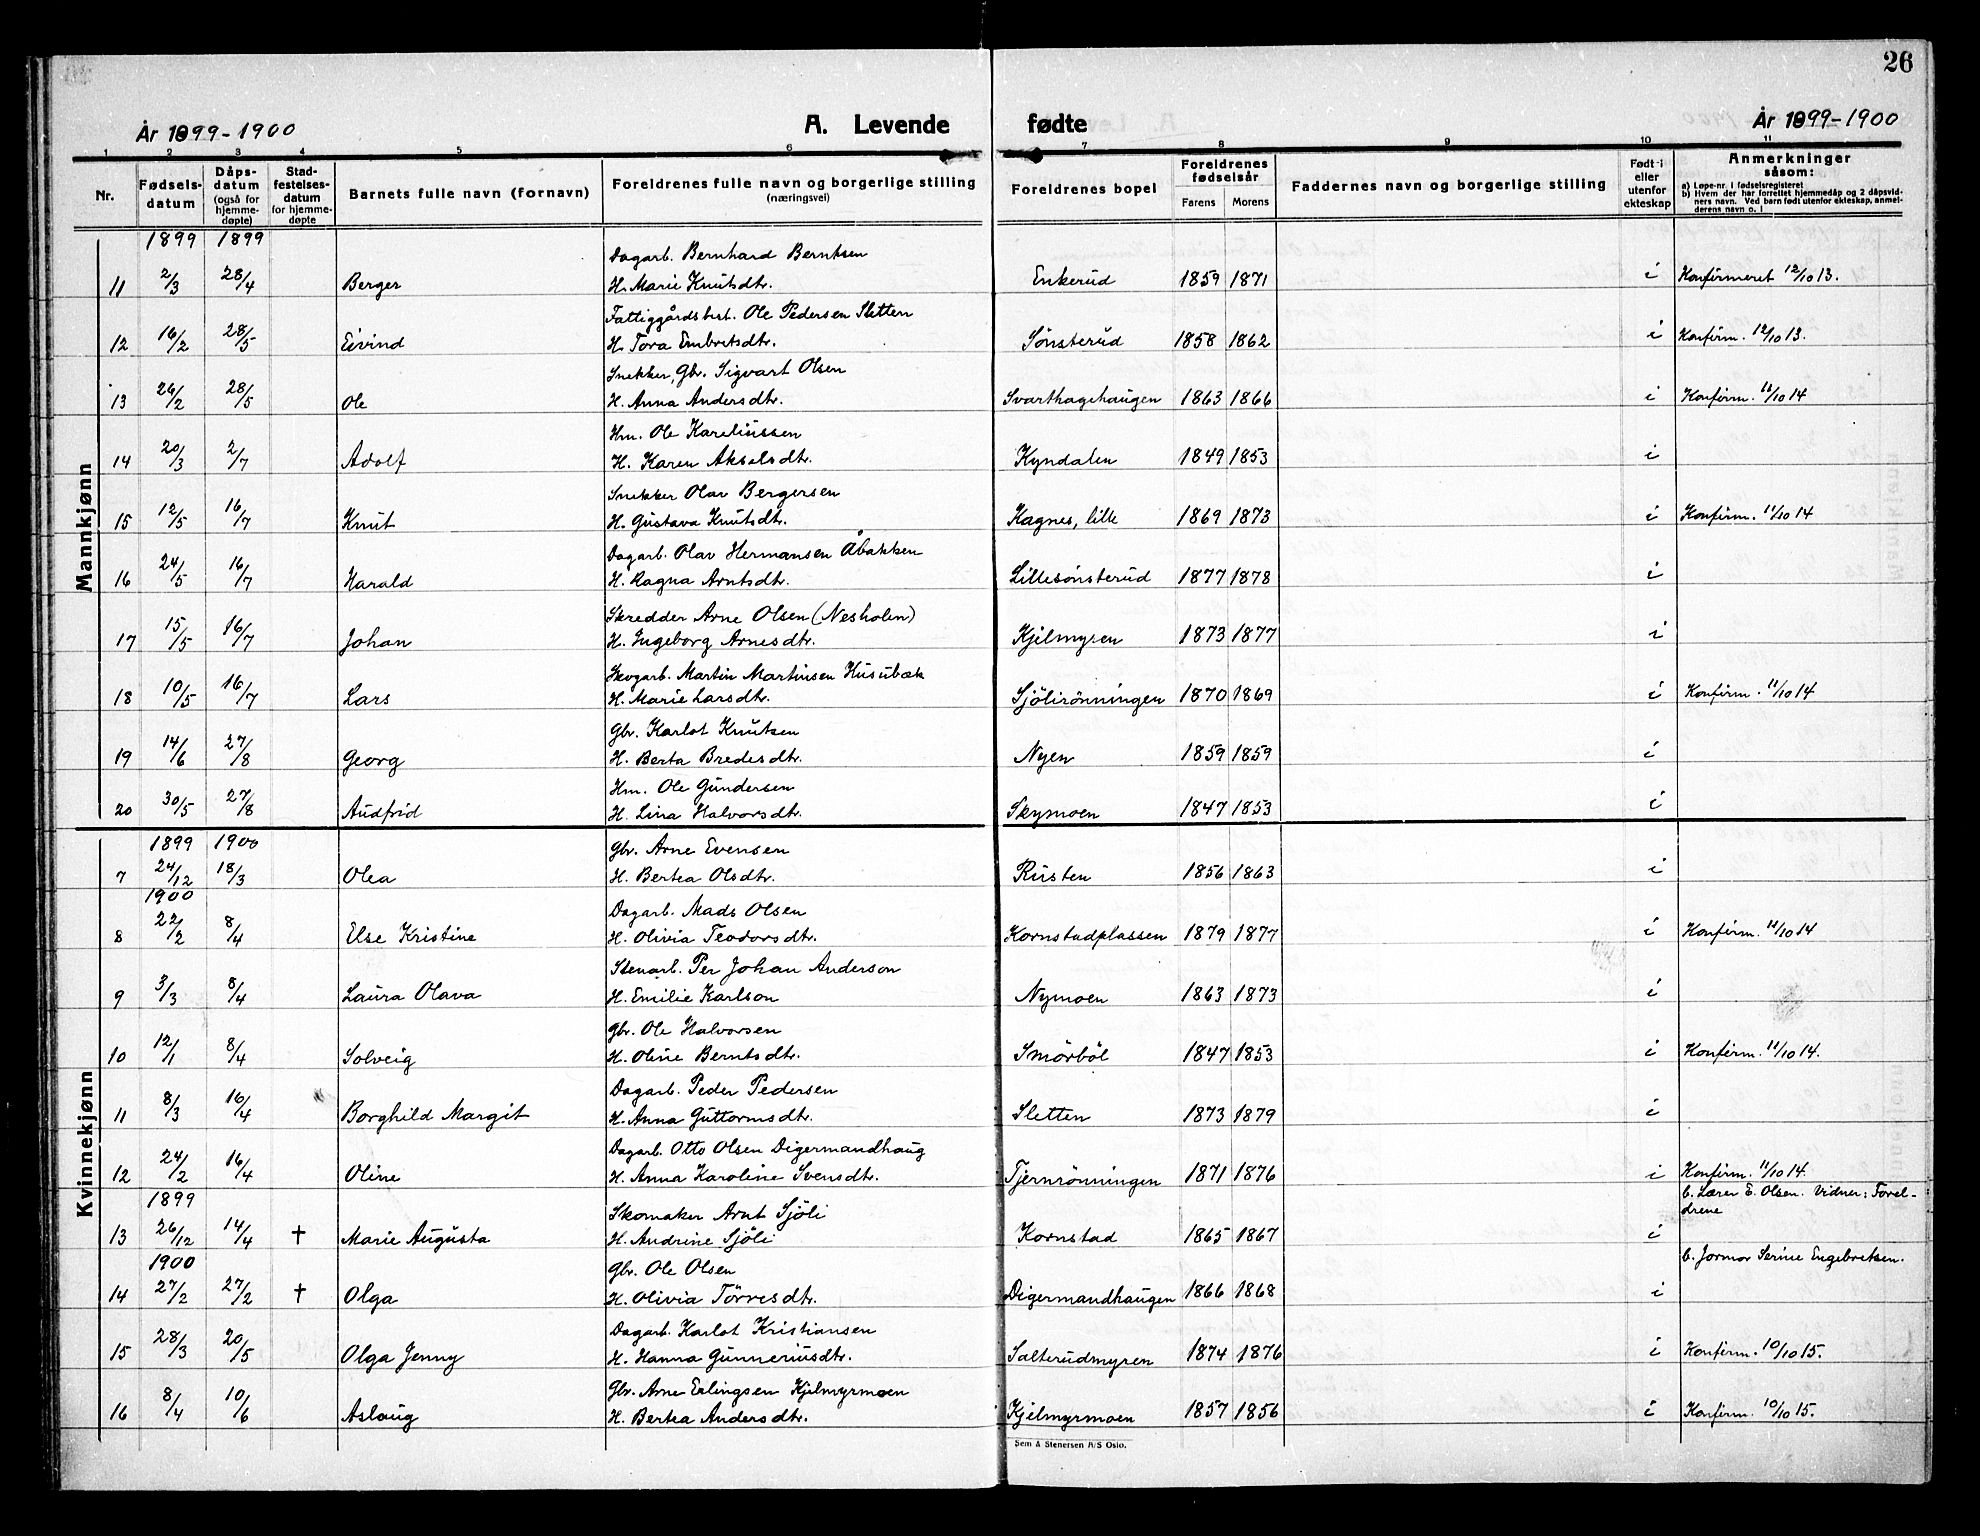 26
År 1899-1900 A. Levende fødte År 1899-1900
1 2 3 4 5 6 7 8 9 10 11
Nr. Fødsels-datum Dåps-datum (også for hjemme-døpte) Stad-festelses-datum for hjemme-døpte Barnets fulle navn (fornavn) Foreldrenes fulle navn og borgerlige stilling (næringsvei) Foreldrenes bopel Foreldrenes fødselsår Farens Morens Faddernes navn og borgerlige stilling Født i eller utenfor ekteskap Anmerkninger såsom:
a) Løpe-nr. i fødselsregisteret
b) Hvem der har forrettet hjemmedåp og 2 dåpsvidners navn. Ved barn født utenfor ekteskap, anmelderens navn o. l
Mannkjønn
1899 1899
Dagarb. Bernhard Berntsen
11 2/3 28/4 Berger H. Marie Knutsdtr. Enkerud 1859 1871 i Konfirmeret 12/10 13.
Fattiggårdsbest. Ole Pedersen Sletten
12 16/2 28/5 Eivind H. Tora Embretsdtr. Sönsterud 1858 1862 i Konfirm. 12/10 13.
Snekker, Gbr. Sigvart Olsen
13 26/2 28/5 Ole H. Anna Andersdtr. Svarthagehaugen 1863 1866 i Konfirm. 11/10 14
Hm. Ole Kareliussen
14 20/3 2/7 Adolf H. Karen Akselsdtr. Kyndalen 1849 1853 i
Snekker Olav Bergersen
15 12/5 16/7 Knut H. Gustava Knutsdtr. Kagnes, lille 1869 1873 i Konfirm. 11/10 14
Dagarb. Olav Hermansen Åbakken
16 24/5 16/7 Harald H. Ragna Arntsdtr. Lillesönsterud 1877 1878 i
Skredder Arne Olsen (Nesholen)
17 15/5 16/7 Johan H. Ingeborg Arnesdtr. Kjelmyren 1873 1877 i
Skogarb. Martin Martinsen Husubæk
18 10/5 16/7 Lars H. Marie Larsdtr. Sjölirönningen 1870 1869 i Konfirm. 11/10 14
Gbr. Karlot Knutsen
19 14/6 27/8 Georg H. Berta Bredesdtr. Nyen 1859 1859 i
Hm. Ole Gundersen
20 30/5 27/8 Audfrid H. Lina Halvorsdtr. Skymoen 1847 1853 i
Kvinnekjønn
1899 1900
Gbr. Arne Evensen
7 24/12 18/3 Olea H. Bertea Olsdtr. Rusten 1856 1863 i
1900
Dagarb. Mads Olsen
8 22/2 8/4 Else Kristine H. Olivia Teodorsdtr. Kornstadplassen 1879 1877 i Konfirm. 11/10 14
Stenarb. Per Johan Anderson
9 3/3 8/4 Laura Olava H. Emilie Karlson Nymoen 1863 1873 i
Gbr. Ole Halvorsen
10 12/1 8/4 Solveig H. Oline Berntsdtr. Smörböl 1847 1853 i Konfirm. 11/10 14.
Dagarb. Peder Pedersen
11 8/3 16/4 Borghild Margit H. Anna Guttormsdtr. Sletten 1873 1879 i
Dagarb. Otto Olsen Digermandhaug
12 24/2 16/4 Oline H. Anna Karoline Svensdtr. Tjernrönningen 1871 1876 i Konfirm. 11/10 14.
1899
b. Lærer E. Olsen. Vidner: Foreldrene
Skomaker Arnt Sjöli
13 26/12 14/4 † Marie Augusta H. Andrine Sjöli Kornstad 1865 1867 i
1900
b. Jormor Serine Engebretsen.
Gbr. Ole Olsen
14 27/2 27/2 † Olga H. Olivia Törresdtr. Digermandhaugen 1866 1868 i
Dagarb. Karlot Kristiansen
15 28/3 20/5 Olga Jenny H. Hanna Gunneriusdtr. Salterudmyren 1874 1876 i Konfirm. 10/10 15.
Gbr. Arne Erlingsen Kjelmyrmoen
16 8/4 10/6 Aslaug H. Bertea Andersdtr. Kjelmyrmoen 1857 1856 i Konfirm. 10/10 15.
Sem & Stenersen A/S Oslo.